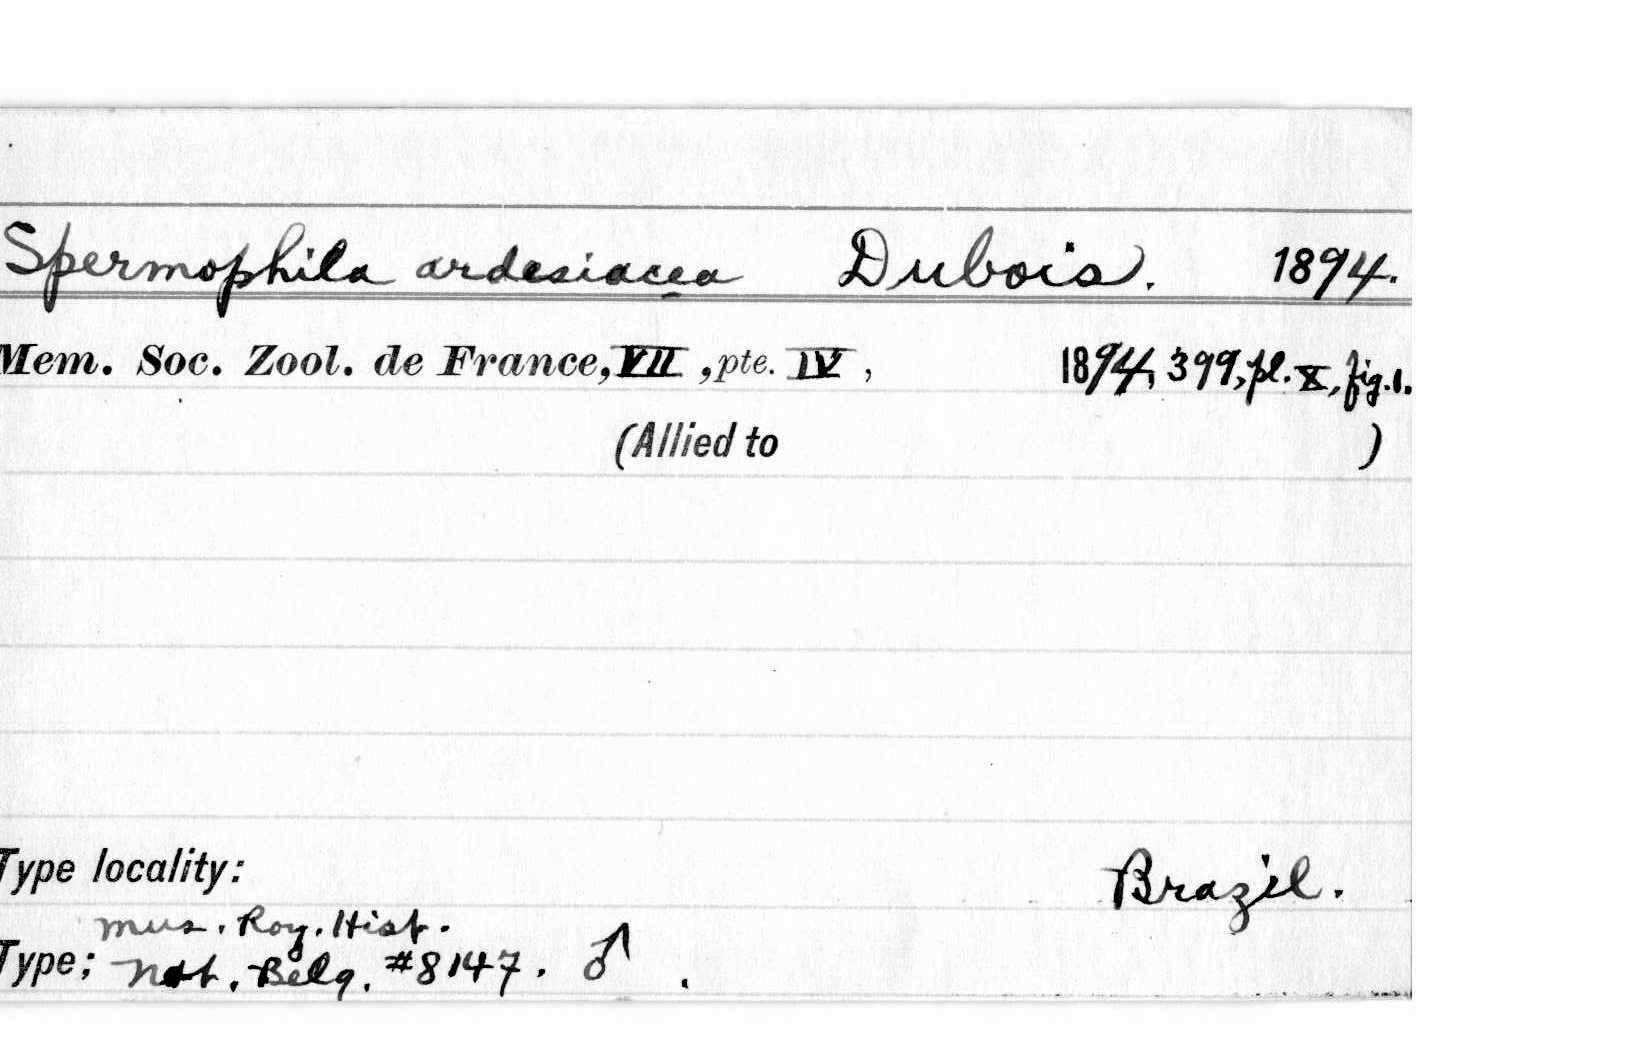 Spermophila ardesiacea Dubois. 1894.
Mem. Soc. Zool. de France, VII, pte. IV, 1894, 399, pl. X, fig. 1.
(Allied to )
Type locality: Brazil.
Mus. Roy. Hist.
Type; Nat. Belg. #8147. ♂.